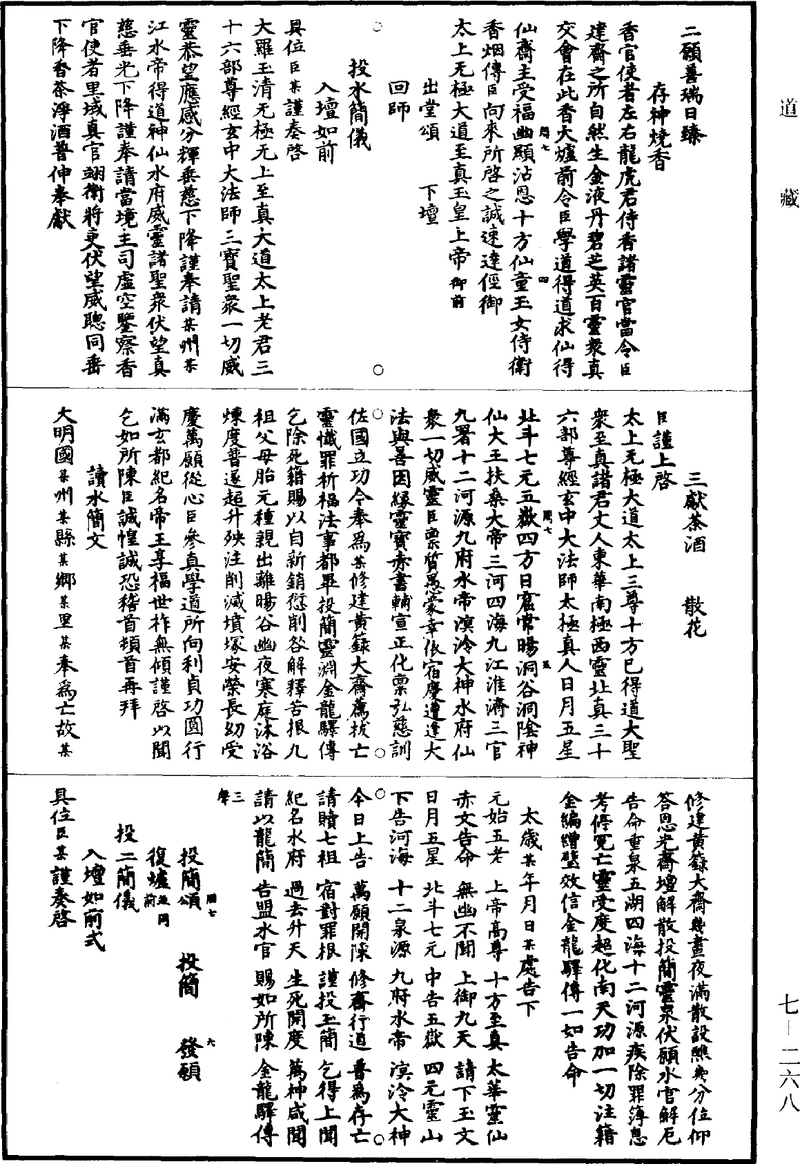 道藏
二願善瑞日臻
存神燒香
香官使者左右龍虎君侍香諸靈官當令臣
建齋之所自然生金液丹碧芝英百靈衆真
交會在此香火爐前令臣學道得道求仙得
仙齋主受福幽顯沾恩十方仙童玉女侍衛
香烟傳臣向來所啓之誠速達徑御
太上无極大道至真玉皇上帝御前
出堂頌 下壇
回師
投水簡儀
入壇如前
具位臣某謹奏啓
大羅玉清无極无上至真大道太上老君三
十六部尊經玄中大法師三寶聖衆一切威
靈恭望應感分輝垂慈下降謹奉請某州某
江水帝得道神仙水府威靈諸聖衆伏望真
慈垂光下降謹奉請當境主司虛空鑒察香
官使者里域真官翊衛將吏伏望威聰同垂
下降香茶淨酒普伸奉獻
三獻茶酒 散花
臣謹上啓
太上无極大道太上三尊十方已得道大聖
衆至真諸君丈人東華南極西靈北真三十
六部尊經玄中大法師太極真人日月五星
北斗七元五嶽四方日窟常暘洞谷洞陰神
仙大王扶桑大帝三河四海九江淮濟三官
九署十二河源九府水帝溟泠大神水府仙
衆一切威靈臣禀質愚蒙幸依宿慶遭逢大
法與善因緣靈寶赤書輔宣正化禀弘慈訓
佐國立功今奉爲某修建黃籙大齋薦拔亡
靈懺罪祈福法事都畢投簡靈淵金龍驛傳
乞除死籍賜以自新銷愆削咎解釋苦根九
祖父母胎元種親出離暘谷幽夜寒庭沐浴
煉度普遂超升殃注削滅墳塚安榮長幼受
慶萬願從心臣參真學道所向利貞功圓行
滿玄都紀名帝王享福世祚無傾謹啓以聞
乞如所陳臣誠惶誠恐稽首頓首再拜
讀水簡文
大明國某州某縣某鄉某里某奉爲亡故某
修建黃籙大齋幾晝夜滿散設醮幾分位仰
答恩光齋壇解散投簡靈泉伏願水官解厄
告命重泉五湖四海十二河源疾除罪簿息
考停寃亡靈受度超化南天功加一切注籍
金編繒璧效信金龍驛傳一如告命
太歲某年月日某處告下
元始五老 上帝高尊 十方至真 太華靈仙
赤文告命 無幽不聞 上御九天 請下玉文
日月五星 北斗七元 中告五嶽 四元靈山
下告河海 十二泉源 九府水帝 溟泠大神
今日上告 萬願開陳 修齋行道 普爲存亡
請贖七祖 宿對罪根 謹投玉簡 乞得上聞
紀名水府 過去升天 生死開度 萬神咸聞
請以龍簡 告盟水官 賜如所陳 金龍驛傳
三聲
投簡頌 投簡 發願
復爐並同前
投二簡儀
入壇如前式
具位臣某謹奏啓
七—二六八